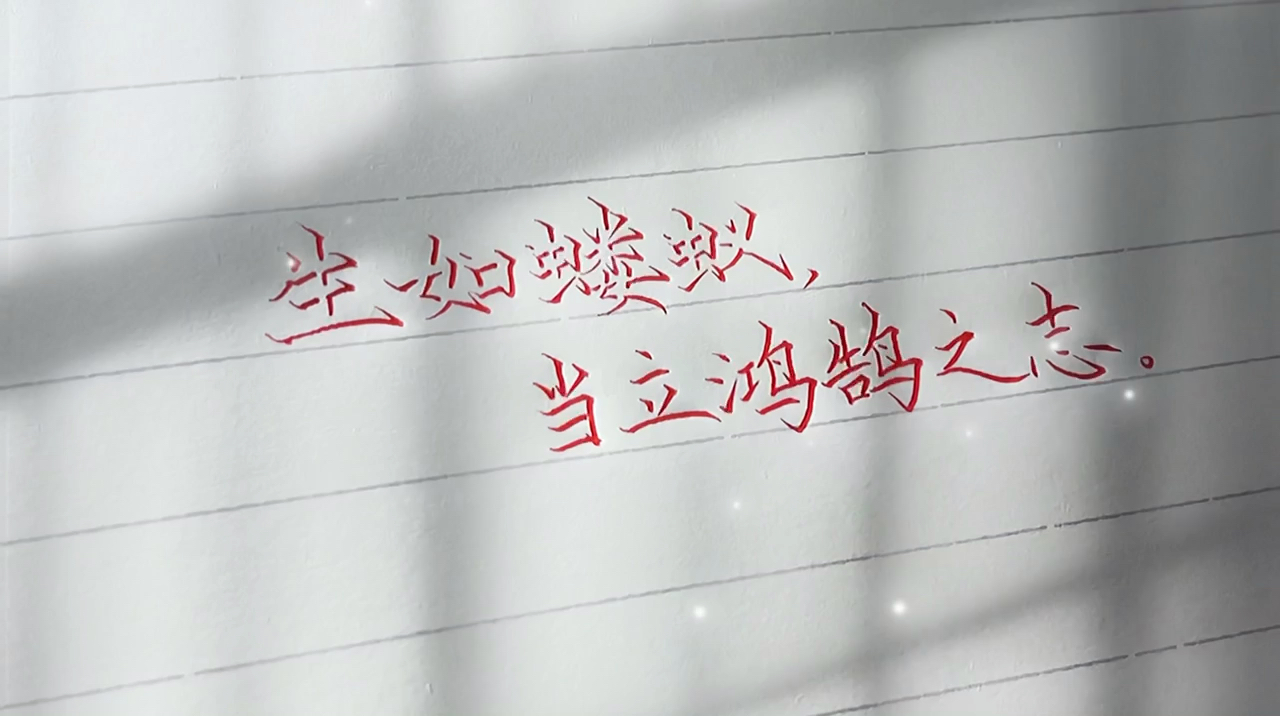 生如蝼蚁,
当立鸿鹄之志。